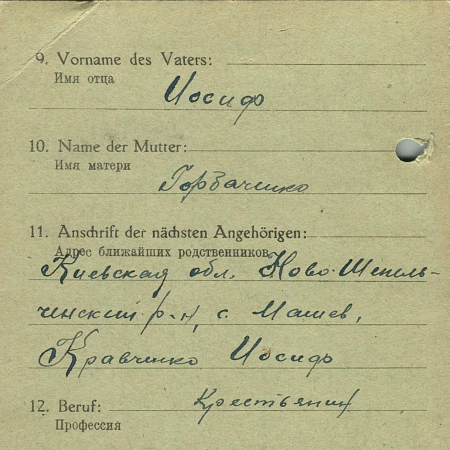 9. Vorname des Vaters:
Имя отца
Иосиф
10. Name der Mutter:
Имя матери
Горбаченко
11. Anschrift der nächsten Angehörigen:
Адрес ближайших родственников
Киевская обл. Ново-Шепель-
ченский р-н, с. Машев,
Кравченко Иосиф
12. Beruf:
Крестьянин
Профессия